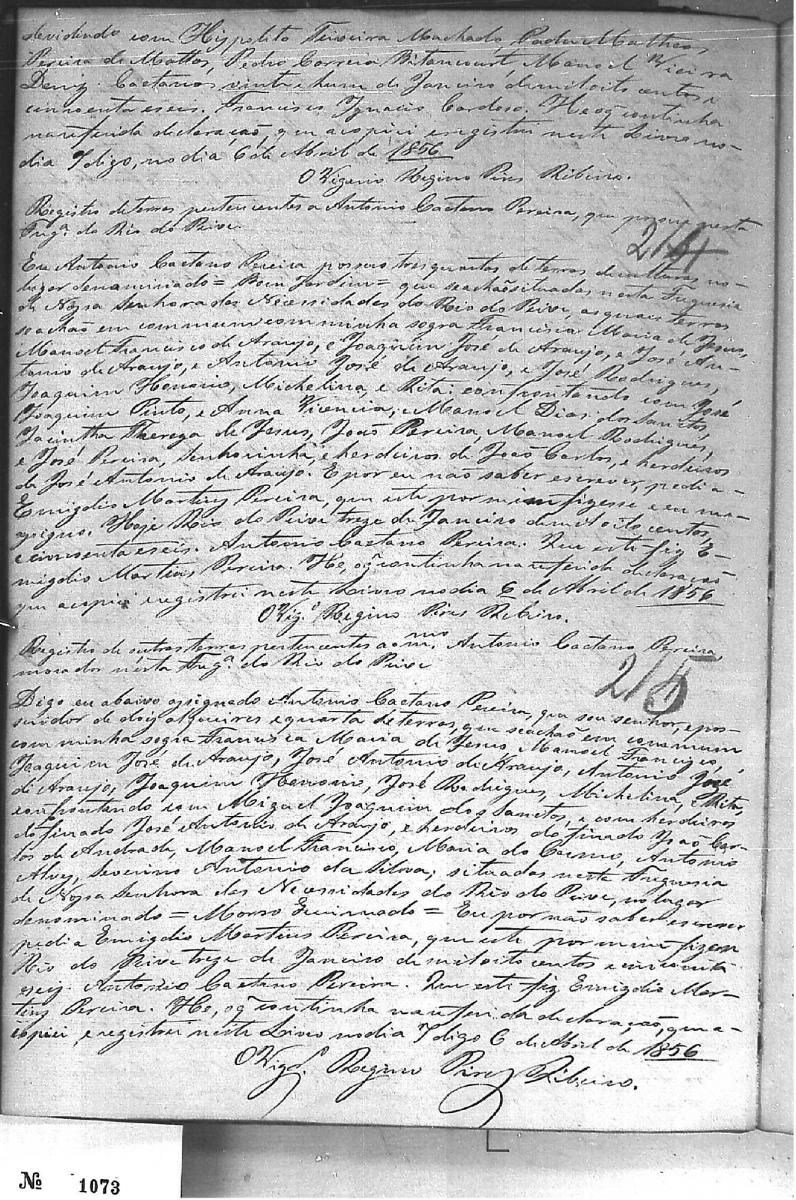 devidindo com Hyppolito Teixeira Machado, Padre Matheos
Pereira de Mattos, Pedro Correia Bitancourt Manoel Vieira
Deniz. Caetanos vinte hum de Janeiro de mil oito centos e
cincoenta e seis. Francisco Ignacio Cardoso. He o q̃ continha
na referida declaração, que a copiei e registrei neste Livro no
dia 7 digo, no dia 6 de Abril de 1856
O Vigario Regino Pires Ribeiro.
Registro de terras pertencentes a Antonio Caetano Pereira, que possue nesta
Freg.ª do Rio do Peixe.
214
Eu Antonio Caetano Pereira possuo tres quartas de terras de culturas no
lugar denuminado = Bom Jardim = que se achão situadas nesta Freguesia
de Nossa Senhora das Necessidades do Rio do Peixe, as quaes terras
se achão em commum com minha sogra Francisca Maria de Jesus,
Manoel Francisco de Araujo, e Joaquim José de Araujo, e José An-
tonio de Araujo, e Antonio José de Araujo, e José Rodrigues,
Joaquim Honorio, Michelina, e Rita: confrontando com José
Joaquim Pinto, e Anna Vicencia, e Manoel Dias dos Santos,
Jacintha Thereza de Jesus, João Pereira, Manoel Rodrigues,
e José Pereira, Senhorinha, e herdeiros de João Carlos, e herdeiros
de José Antonio de Araujo. E por eu não saber escrever, pedi a
Emigdio Martins Pereira, que este por mim fizesse e eu me
assigno. Hoje Rio do Peixe treze de Janeiro de mil oito centos
e cincoenta e seis. Antonio Caetano Pereira. Que este fiz E-
migdio Martins Pereira. He, o q̃ continha na referida declaração
que a copiei e registrei neste Livro no dia 6 de Abril de 1856
O Vig.º Regino Pires Ribeiro.
Registro de outras terras pertencentes ao m.mo Antonio Caetano Pereira,
morador nesta Freg.ª do Rio do Peixe
215
Digo eu abaixo assignado Antonio Caetano Pereira, que sou senhor, e pos-
suidor de dois alqueires e quarta de terras, que se achão em commum
com minha sogra Francisca Maria de Jesus Manoel Francisco,
Joaquim José de Araujo, José Antonio de Araujo, Antonio José
de Araujo, Joaquim Honorio, José Rodrigues, Michelina, e Rita,
confrontando com Miguel Joaquim dos Santos, e com herdeiros
do finado José Antonio de Araujo, e herdeiros do finado João Car-
los de Andrade, Manoel Francisco, Maria do Carmo, Antonio
Alves, Severino Antonio da Silva; situadas nesta Freguesia
de Nossa Senhora das Necessidades do Rio do Peixe, no lugar
denominado = Morro Queimado = Eu por não saber escrever
pedi a Emigdio Martins Pereira, que este por mim fizera
Rio do Peixe treze de Janeiro de mil oito centos e cincoenta
e seis. Antonio Caetano Pereira. Que este fiz Emigdio Mar-
tins Pereira. He, o q̃ continha na referida declaração, que a-
copiei e registrei neste Livro no dia 7 digo 6 de Abril de 1856
O Vigr.º Regino Pires Ribeiro.
Nº 1073